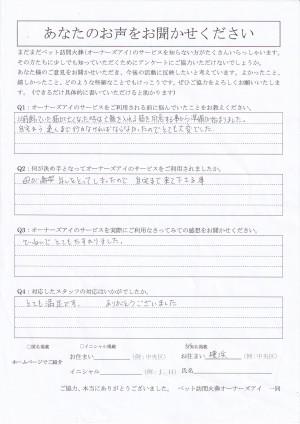 あなたのお声をお聞かせください
まだまだペット訪問火葬(オーナーズアイ)のサービスを知らない方がたくさんいらっしゃいます。
その方たちにも少しでも知っていただくためにアンケートにご協力いただけないでしょうか。
あなた様のご意見をお聞かせいただき、今後の活動に反映したいと考えています。よかったこと、
嬉しかったこと、どのような些細なことでもけっこうです。ぜひご協力をよろしくお願いいたします。
(できるだけ具体的に書いていただけると助かります)
Q1：オーナーズアイのサービスをご利用される前に悩んでいたことをお教えください。
Q2：何が決め手となってオーナーズアイのサービスをご利用されましたか。
母が高齢 自宅まで来て下さる事
Q3：オーナーズアイのサービスを実際にご利用なさってみての感想をお聞かせください。
ていねいで とてもたすかりました。
Q4：対応したスタッフの対応はいかがでしたか。
とても満足です。 ありがとうございました
□匿名掲載 □イニシャル掲載
お住まい (例：中央区) お住まい (例：中央区)
ホームページでご紹介
イニシャル (例：J．H) 氏名
ご協力、本当にありがとうございました。 ペット訪問火葬オーナーズアイ 一同